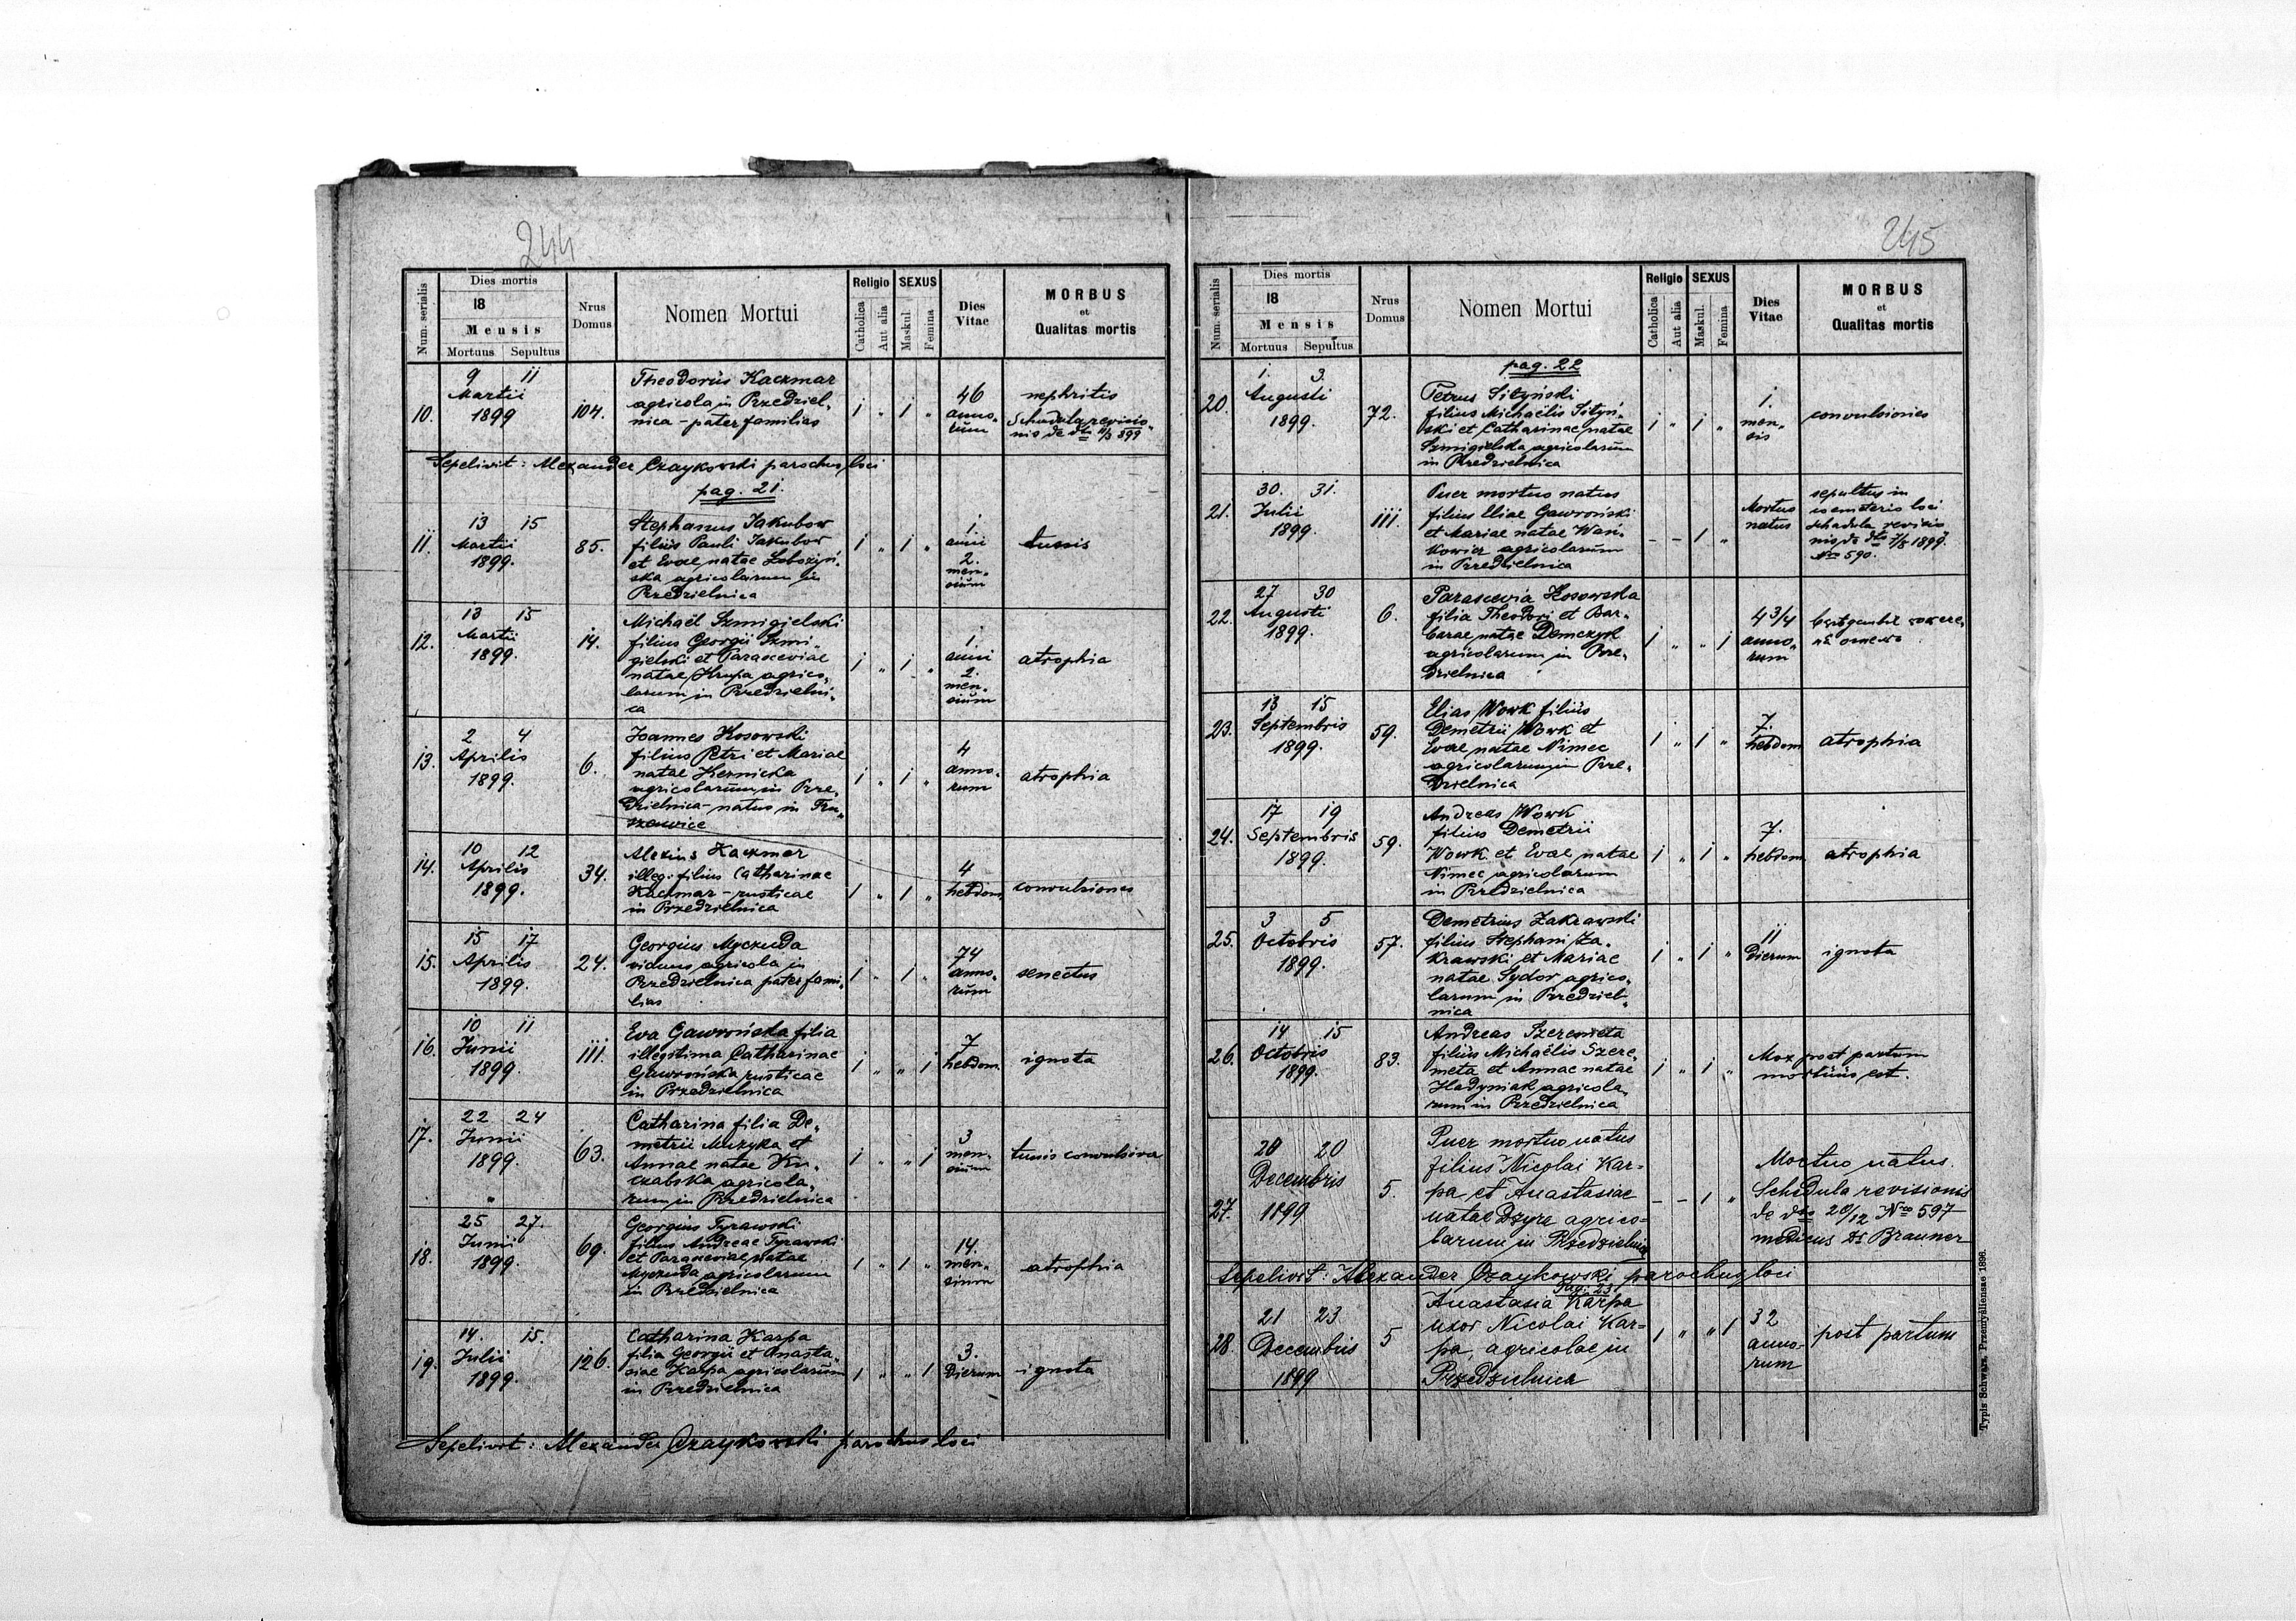 244
Num. serialis
Dies mortis
18
Mensis
Mortuus Sepultus
Nrus Domus
Nomen Mortui
Religio
Catholica
Aut alia
SEXUS
Maskul.
Femina
Dies Vitae
MORBUS
et
Qualitas mortis
10.
9 11
Martii
1899
104.
Theodorus Kaczmar
agricola in Przedziel„
nica - pater familias
1 „ 1 „
46
anno„
rum
nephritis
Schedula revisio„
nis de dto 11/3 899
Sepelivit: Alexander Czaykowski parochus loci
pag. 21.
11.
13 15
Martii
1899.
85.
Stephanus Jakubow
filius Pauli Jakubow
et Evae natae
ska agricolarum in
Przedzielnica
1 „ 1 „
1.
anni
2.
men„
sium
tussis
12.
13 15
Martii
1899.
14.
Michaël Szmigielski
filius Georgii Szmi„
gielski et Parasceviae
natae Krupa agrico„
larum in Przedzielni„
ca
1 „ 1 „
1.
anni
2.
men„
sium
atrophia
13.
2 4
Aprilis
1899.
6.
Joannes Kosowski
filius Petri et Mariae
natae
agricolarum in Prze„
dzielnica - natus in Tru„
szowice
1 „ 1 „
4
anno„
rum
atrophia
14.
10 12
Aprilis
1899.
34.
Alexius Kaczmar
illeg. filius Catharinae
Kaczmar - rusticae
in Przedzielnica
1 „ 1 „
4
hebdom.
convulsiones
15.
15 17
Aprilis
1899.
24.
Georgius Myczuda
viduus agricola in
Przedzielnica pater fami„
lias
1 „ 1 „
74
anno„
rum
senectus
16.
10 11
Junii
1899.
111.
Eva Gawrońska filia
illegitima Catharinae
Gawrońska rusticae
in Przedzielnica
1 „ „ 1
7
hebdom.
ignota
17.
22 24
Junii
1899.
63.
Catharina filia De„
metrii Muzyka et
Annae natae Ku„
czabska agricola„
rum in Przedzielnica
1 „ „ 1
3
men„
sium
tussis convulsiva
18.
25 27.
Junii
1899.
69.
Georgius Tyrawski
filius Andreae Tyrawski
et Parasceviae natae
Myczuda agricolarum
in Przedzielnica
1 „ 1 „
14.
men„
sium
atrophia
19.
14. 15.
Julii
1899.
126.
Catharina Karpa
filia Georgii et Anasta„
siae Karpa agricolarum
in Przedzielnica
1 „ „ 1
3.
dierum
ignota
Sepelivit: Alexander Czaykowski parochus loci
245
Num. serialis
Dies mortis
18
Mensis
Mortuus Sepultus
Nrus Domus
Nomen Mortui
Religio
Catholica
Aut alia
SEXUS
Maskul.
Femina
Dies Vitae
MORBUS
et
Qualitas mortis
pag. 22
20.
1. 3.
Augusti
1899.
72.
Petrus Sityński
filius Michaëlis Sityń„
ski et Catharinae natae
Szmigielska agricolarum
in Przedzielnica
1 „ 1 „
1.
men„
sis
convulsiones
21.
30. 31.
Julii
1899.
111.
Puer mortuo natus
filius Eliae Gawroński
et Mariae natae Wań„
kowicz agricolarum
in Przedzielnica
- - 1 „
Mortus
natus
sepultus in
coemeterio loci
schedula revisio
nis de dto 1/8 1899.
Nro 590.
22.
27 30
Augusti
1899.
6.
Parascevia Kosowska
filia Theodori et Bar„
barae natae Demczyk
agricolarum in Prze„
dzielnica
1 „ „ 1
4 3/4
anno„
rum
23.
13 15
Septembris
1899.
59.
Elias Wowk filius
Demetrii Wowk et
Evae natae Nimec
agricolarum in Prze„
dzielnica
1 „ 1 „
7.
hebdom
atrophia
24.
17 19
Septembris
1899.
59.
Andreas Wowk
filius Demetrii
Wowk et Evae natae
Nimec agricolarum
in Przedzielnica
1 „ 1 „
7.
hebdom.
atrophia
25.
3 5
Octobris
1899.
57.
Demetrius Zakrawski
filius Stephani Za„
krawski et Mariae
natae Sydor agrico„
larum in Przedziel„
nica
1 „ 1 „
11
dierum
ignota
26.
14 15
Octobris
1899.
83.
Andreas Szeremeta
filius Michaëlis Szere„
meta et Annae natae
Hadyniak agricola„
rum in Przedzielnica
1 „ 1 „
Mox post partum
mortuus est.
27.
20 20
Decembris
1899
5.
Puer mortuo natus
filius Nicolai Kar=
pa et Anastasiae
natae Dzyra agrico=
larum in Przedzielnica
- - 1 „
Mortuo natus.
Schedula revisionis
de dto 20/12 Nro 597
medicus Dr Brauner
Sepelivit: Alexander Czaykowski parochus loci
Pag. 23
28.
21 23
Decembris
1899
5
Anastasia Karpa
uxor Nicolai Kar=
pa, agricolae in
Przedzielnica
1 „ „ 1
32
anno-
rum
post partum
Typis Schwarz, Przemysliensae 1896.